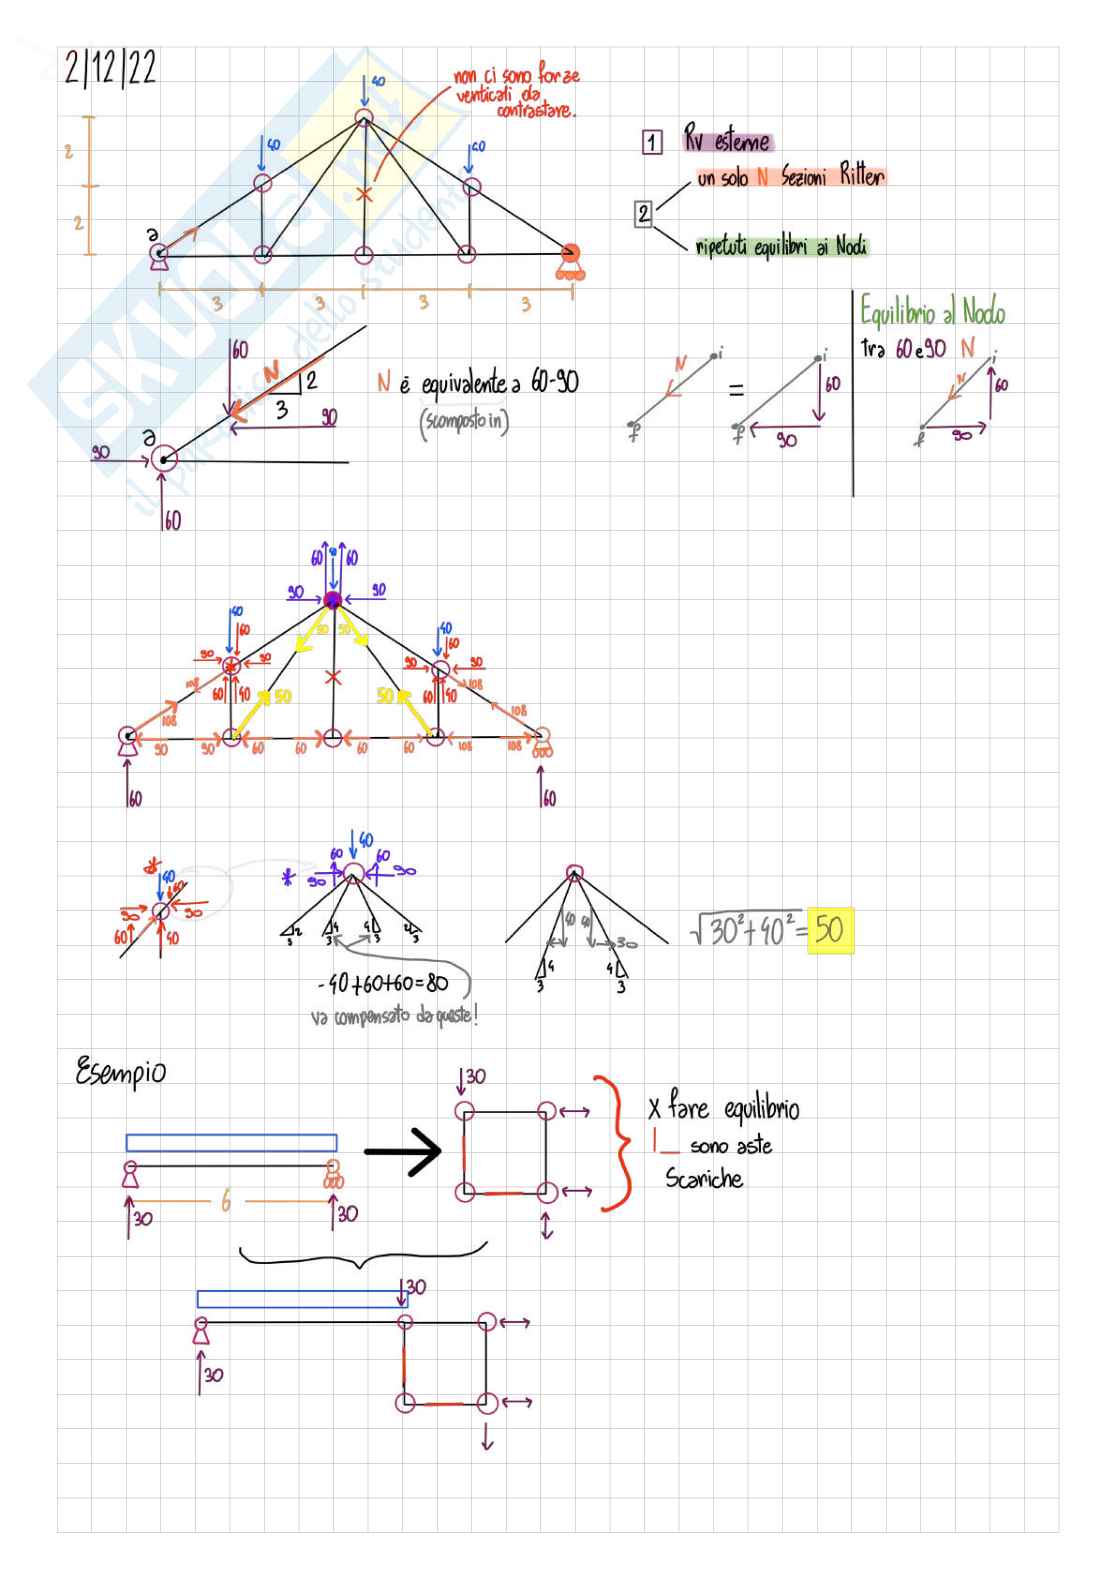 2/12/22
40
non ci sono forze
verticali da
contrastare.
40
40
2
2
a
3
3
3
3
1 Rv esterne
un solo N Sezioni Ritter
2
ripetuti equilibri ai Nodi
SKUOLA.net
il paradiso dello studente
60
N
2
3
90
a
90
60
N è equivalente a 60-90
(scomposto in)
N
i
f
=
i
60
f
90
Equilibrio al Nodo
tra 60 e 90 N
i
N
60
f
90
60
60
90
90
40
60
50
50
40
60
90
90
90
90
108
60
40
50
50
60
40
108
108
108
90
90
60
60
60
60
108
108
60
60
*
40
60
90
90
60
40
*
40
60
60
90
90
2
3
4
3
4
3
2
3
-40+60+60=80
va compensato da queste!
40
40
30
4
3
4
3
√30²+40² = 50
Esempio
6
30
30
30
x fare equilibrio
sono aste
Scariche
30
30